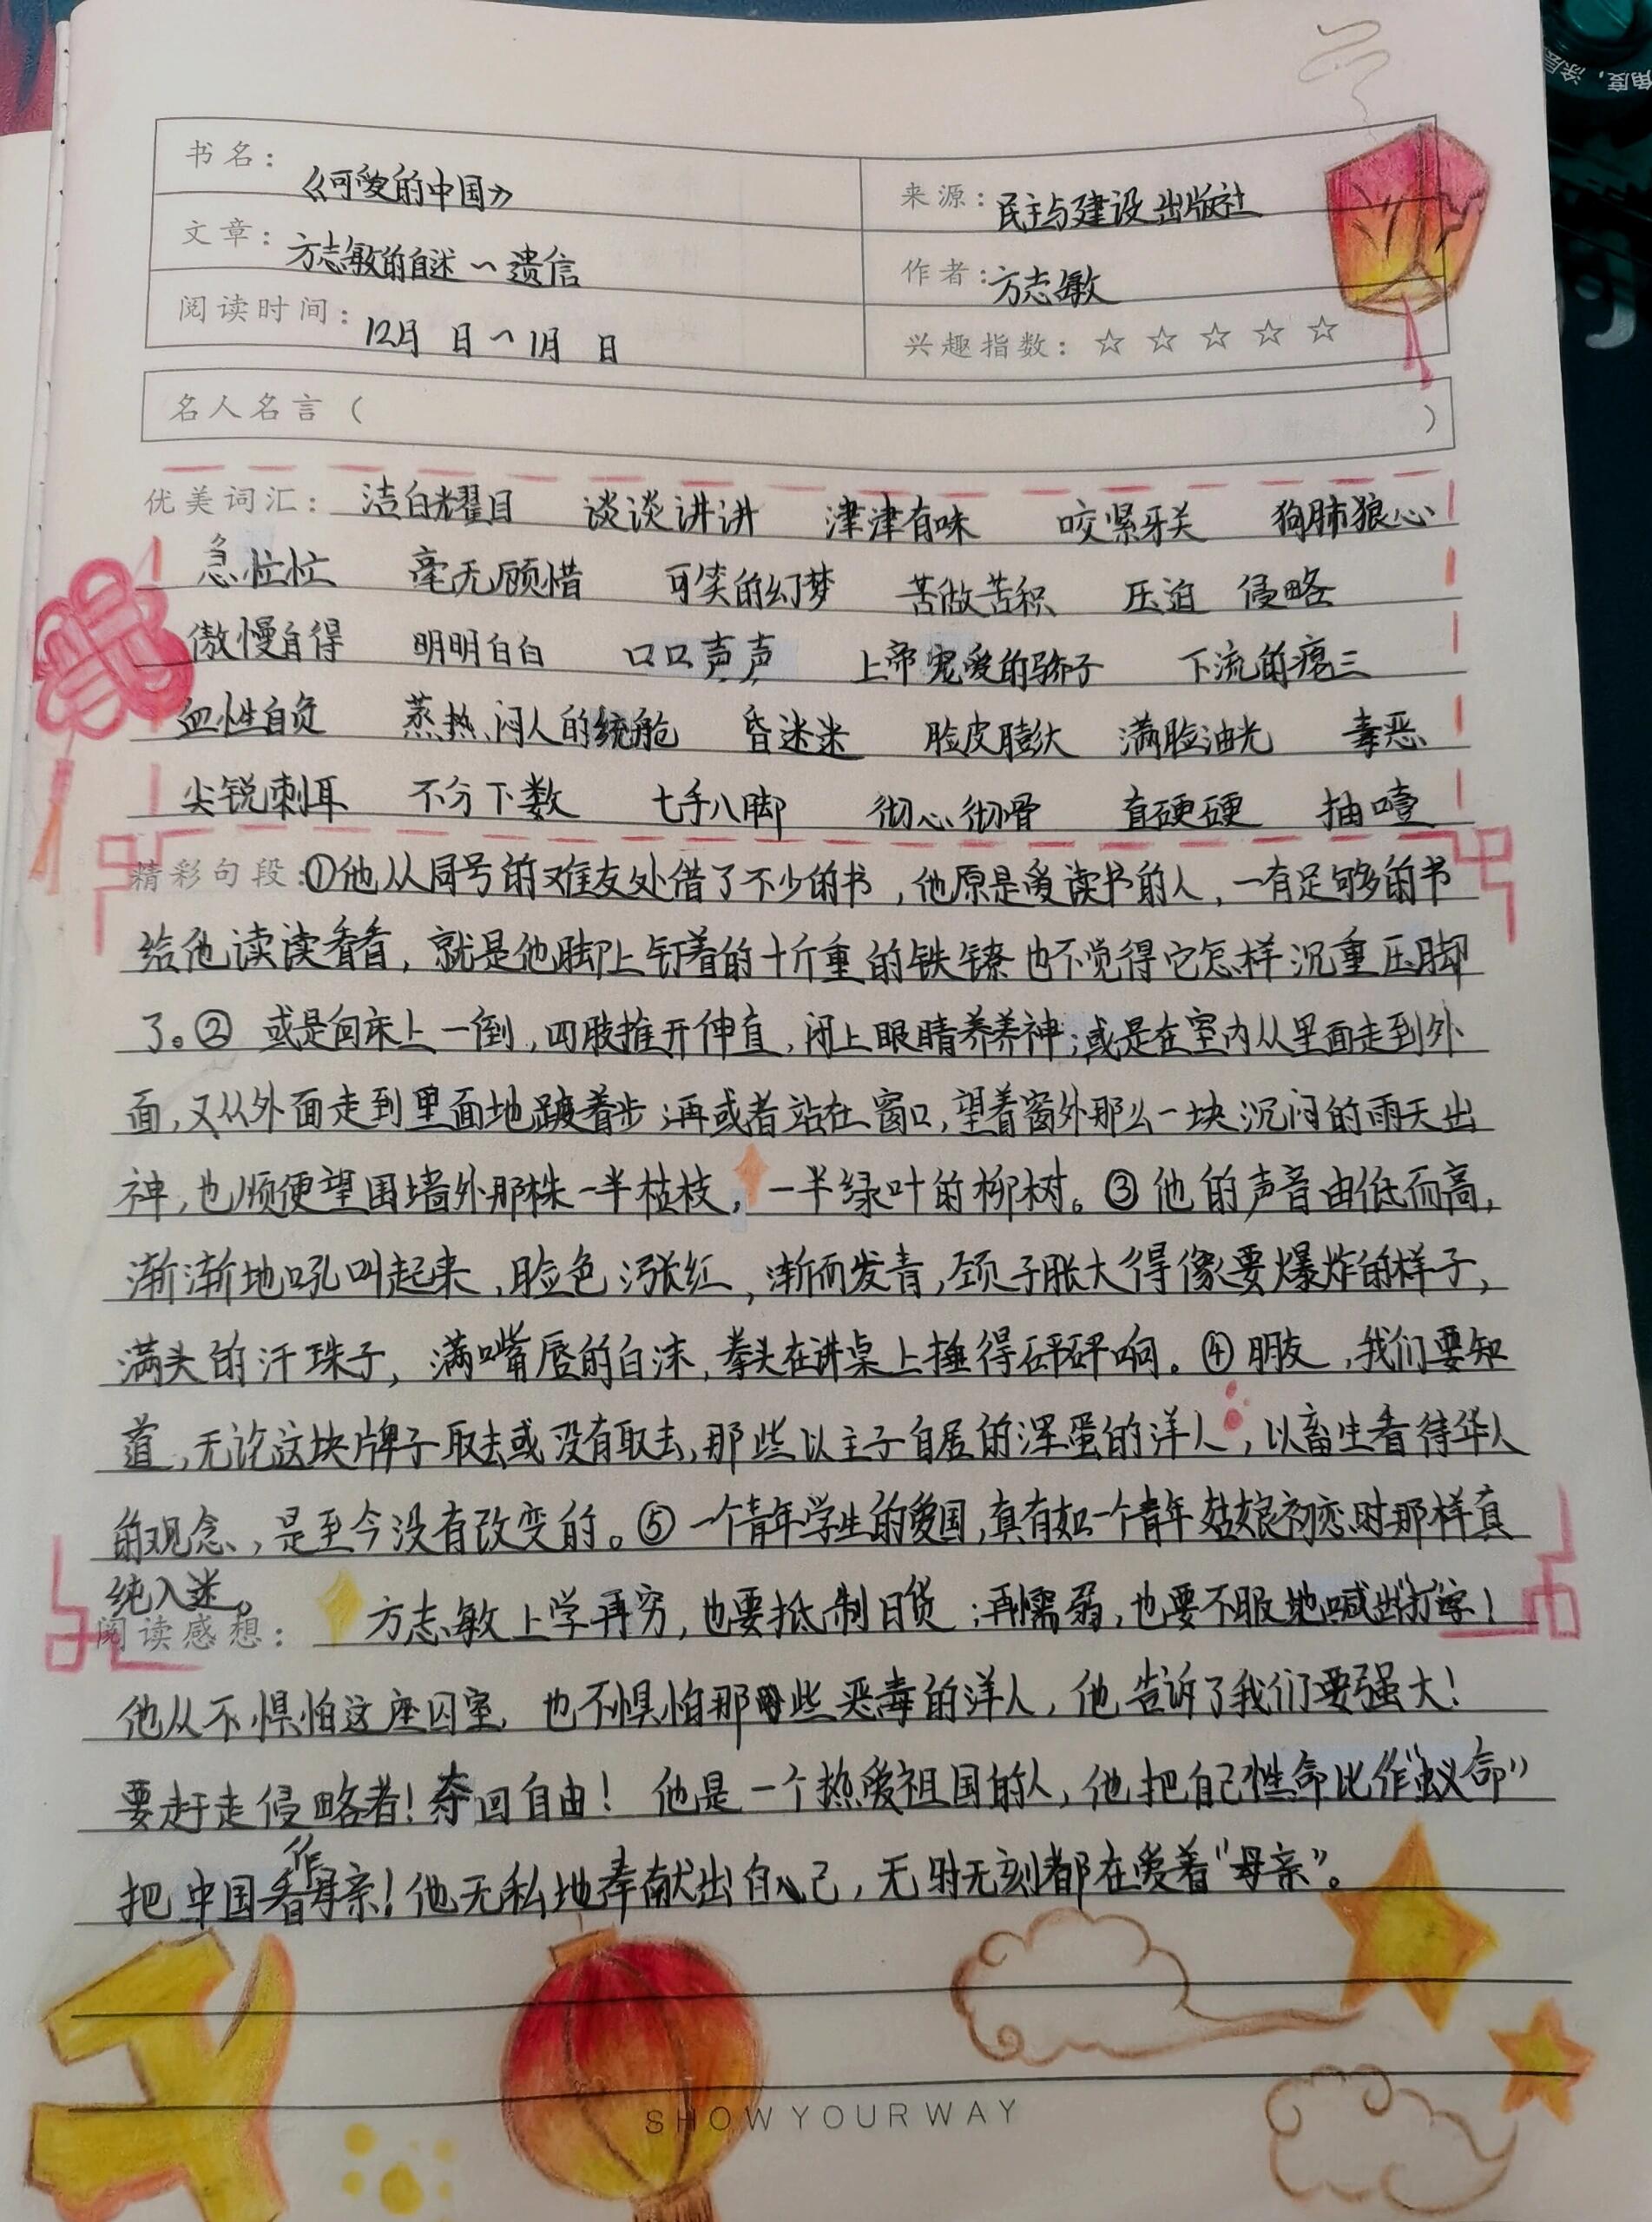 角度，涂层
书名：《可爱的中国》
来源：民主与建设出版社
文章：方志敏的自述～遗信
作者：方志敏
阅读时间：12月 日～1月 日
兴趣指数：☆ ☆ ☆ ☆ ☆
名人名言（ ）
优美词汇：洁白耀目 谈谈讲讲 津津有味 咬紧牙关 狗肺狼心
急忙忙 毫无顾惜 可笑的幻梦 苦做苦积 压迫 侵略
傲慢自得 明明白白 口口声声 上帝宠爱的骄子 下流的瘪三
血性自负 蒸热、闷人的统舱 昏迷迷 脸皮膨大 满脸油光 毒恶
尖锐刺耳 不分下数 七手八脚 彻心彻骨 直硬硬 抽噎
精彩句段：①他从同号的难友处借了不少的书，他原是爱读书的人，一有足够的书
给他读读看看，就是他脚上钉着的十斤重的铁镣也不觉得它怎样沉重压脚
了。② 或是向床上一倒，四肢推开伸直，闭上眼睛养养神；或是在室内从里面走到外
面，又从外面走到里面地踱着步；再或者站在窗口，望着窗外那么一块沉闷的雨天出
神，也顺便望围墙外那株一半枯枝，一半绿叶的柳树。③ 他的声音由低而高，
渐渐地吼叫起来，脸色涨红，渐而发青，颈子胀大得像要爆炸的样子，
满头的汗珠子，满嘴唇的白沫，拳头在讲桌上捶得砰砰响。④朋友，我们要知
道，无论这块牌子取去或没有取去，那些以主子自居的浑蛋的洋人，以畜生看待华人
的观念，是至今没有改变的。⑤ 一个青年学生的爱国，真有如一个青年姑娘初恋时那样真
纯入迷。
阅读感想： 方志敏上学再穷，也要抵制日货；再懦弱，也要不服地喊出“打”字！
他从不惧怕这座囚室，也不惧怕那些恶毒的洋人，他告诉了我们要强大！
要赶走侵略者！夺回自由！他是一个热爱祖国的人，他把自己性命比作“蚁命”
把中国看作母亲！他无私地奉献出自己，无时无刻都在爱着“母亲”。
SHOW YOUR WAY